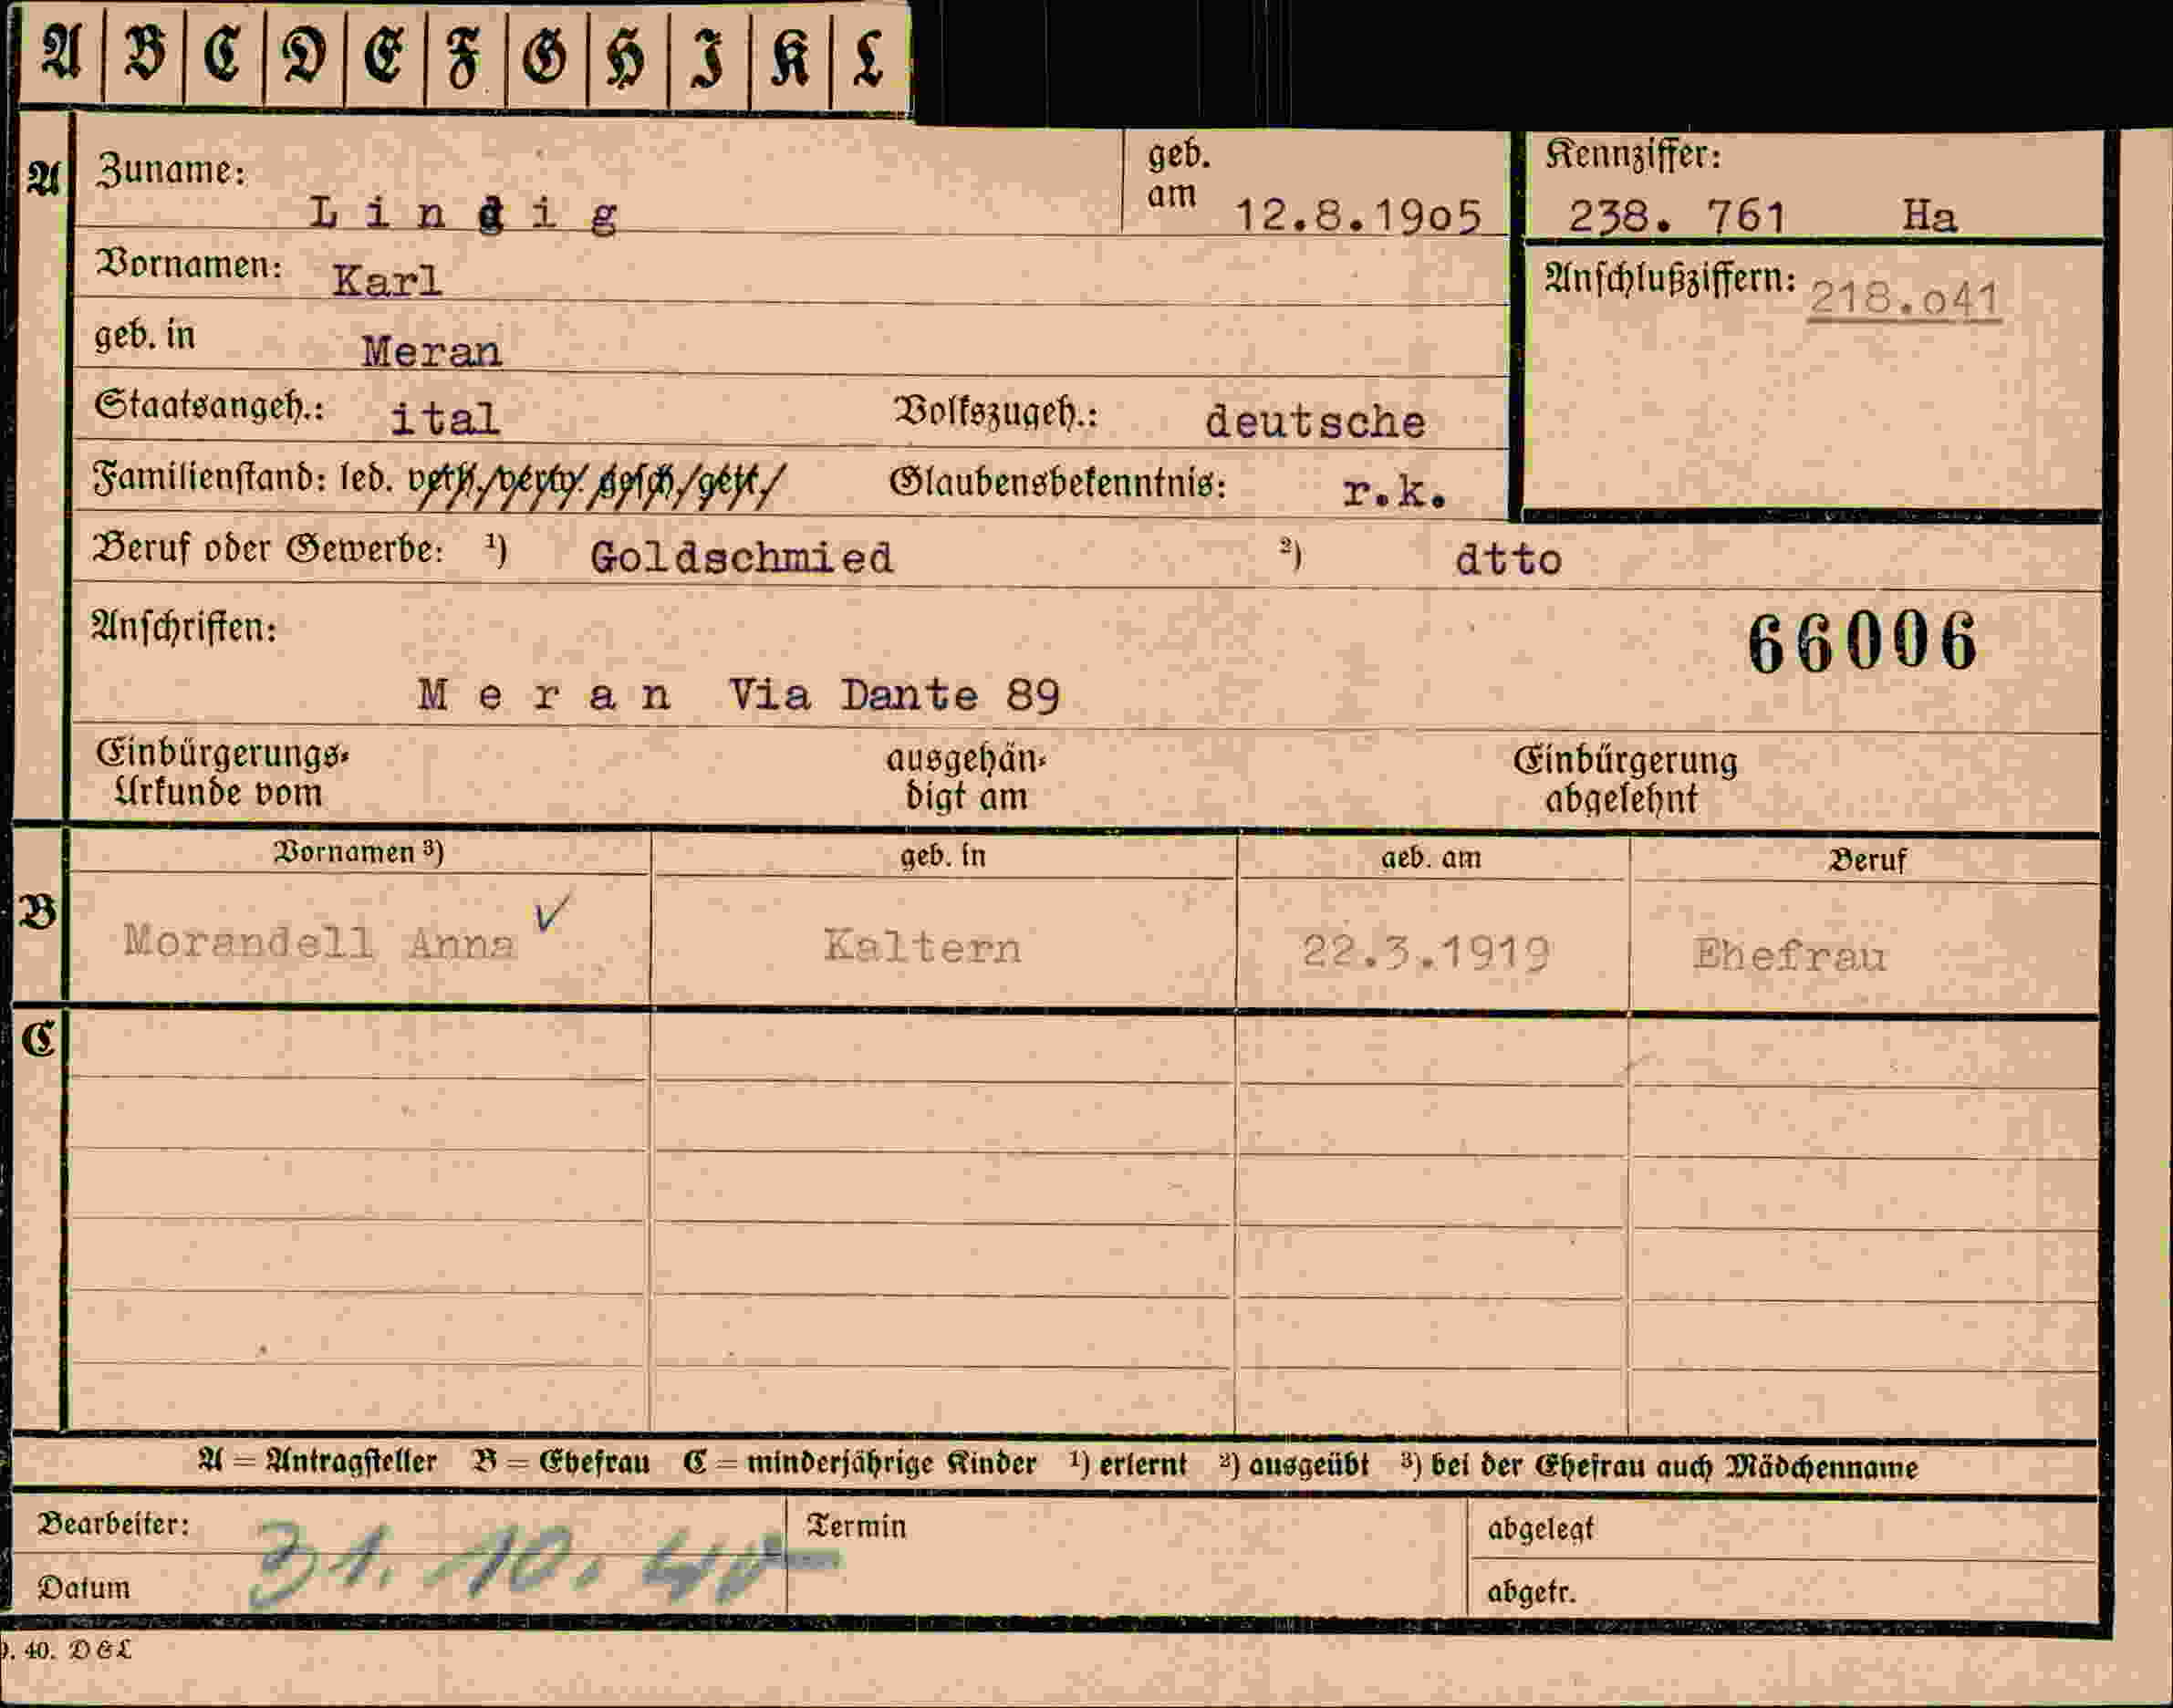 A B C D E F G H I K L
A Zuname: Lindig geb. am 12.8.1905 Kennziffer: 238. 761 Ha
Vornamen: Karl Anschlußziffern: 218.o41
geb. in Meran
Staatsangeh.: ital Volkszugeh.: deutsche
Familienstand: led. verh./verw. gesch./getr./ Glaubensbekenntnis: r.k.
Beruf oder Gewerbe: ¹) Goldschmied ²) dtto
Anschriften: 66006
Meran Via Dante 89
Einbürgerungs- ausgehän- Einbürgerung
Urkunde vom digt am abgelehnt
Vornamen ³) geb. in geb. am Beruf
B Morandell Anna ✓ Kaltern 22.3.1919 Ehefrau
C
A = Antragsteller B = Ehefrau C = minderjährige Kinder ¹) erlernt ²) ausgeübt ³) bei der Ehefrau auch Mädchenname
Bearbeiter: Termin abgelegt
Datum 31. 10. 40 abgetr.
40. DEL